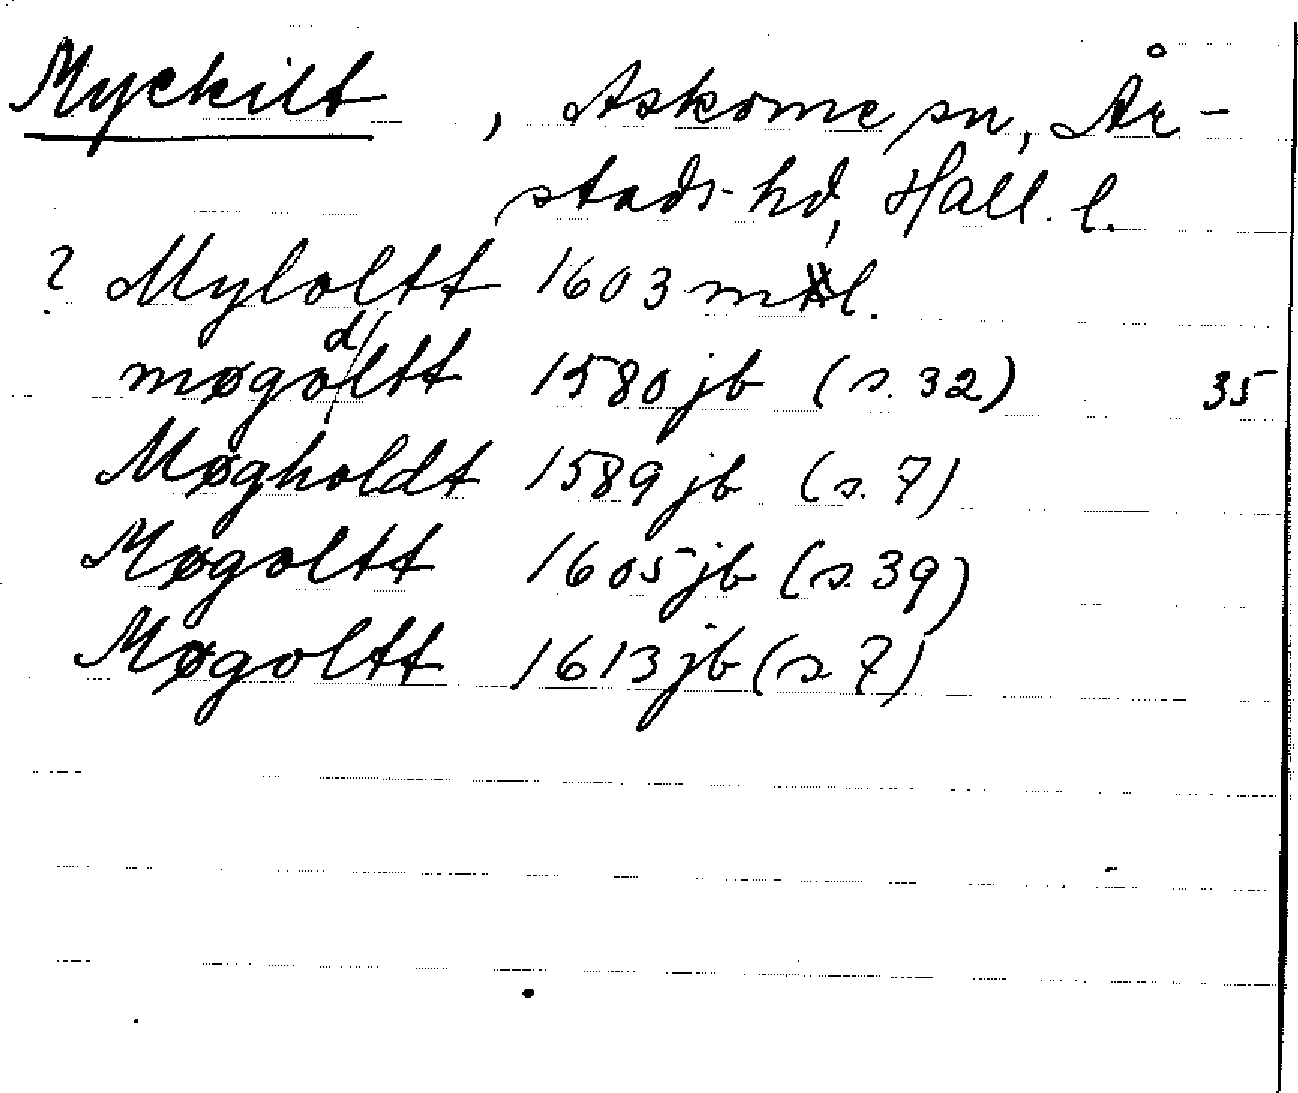 Myckilt, Askome sn, År-
stads hd, Hall. l.
? Myloltt 1603 mtl.
d
møgoltt 1580 jb (s. 32) 35
Møgholdt 1589 jb (s. 7)
Møgoltt 1605 jb (s. 39)
Møgoltt 1613 jb (s 7)